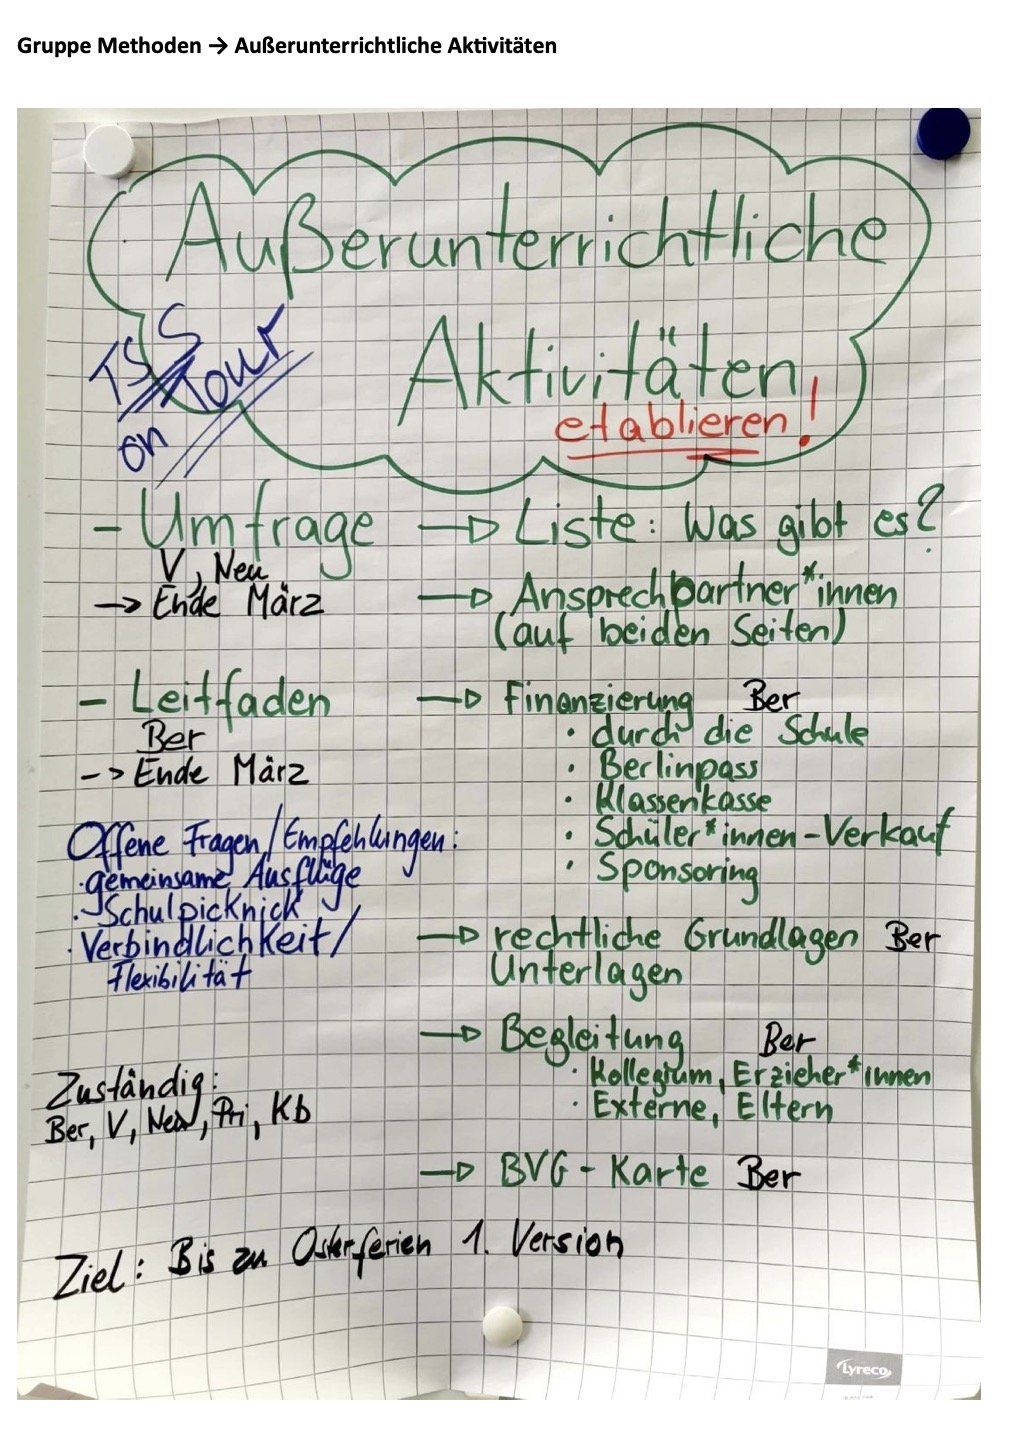 Gruppe Methoden → Außerunterrichtliche Aktivitäten
Außerunterrichtliche
Aktivitäten
etablieren!
TSS
on Tour
- Umfrage
V, Neu
→ Ende März
→ Liste: Was gibt es?
→ Ansprechpartner*innen
(auf beiden Seiten)
- Leitfaden
Ber
-> Ende März
→ Finanzierung Ber
· durch die Schule
· Berlinpass
· Klassenkasse
· Schüler*innen-Verkauf
· Sponsoring
Offene Fragen/Empfehlungen:
· gemeinsame Ausflüge
· Schulpicknick
· Verbindlichkeit/
Flexibilität
→ rechtliche Grundlagen Ber
Unterlagen
→ Begleitung Ber
· Kollegium, Erzieher*innen
· Externe, Eltern
→ BVG-Karte Ber
Zuständig:
Ber, V, Neu, Pri, Kb
Ziel: Bis zu Osterferien 1. Version
Lyreco